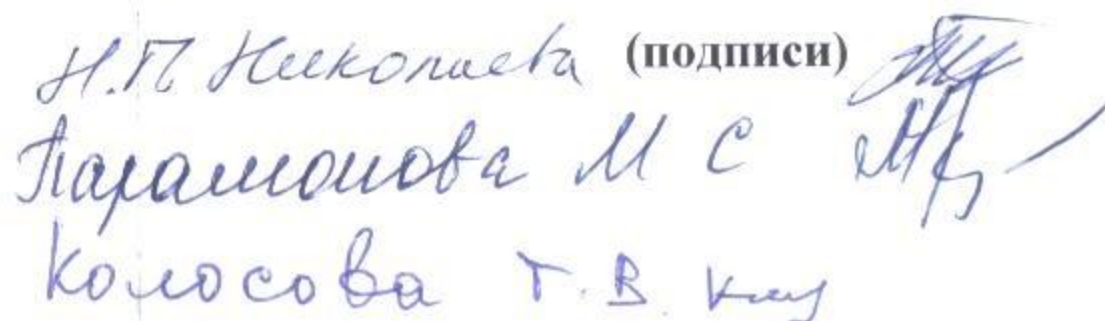 Н.П Николаева (подписи)
Парамонова М С
Колосова Т.В.